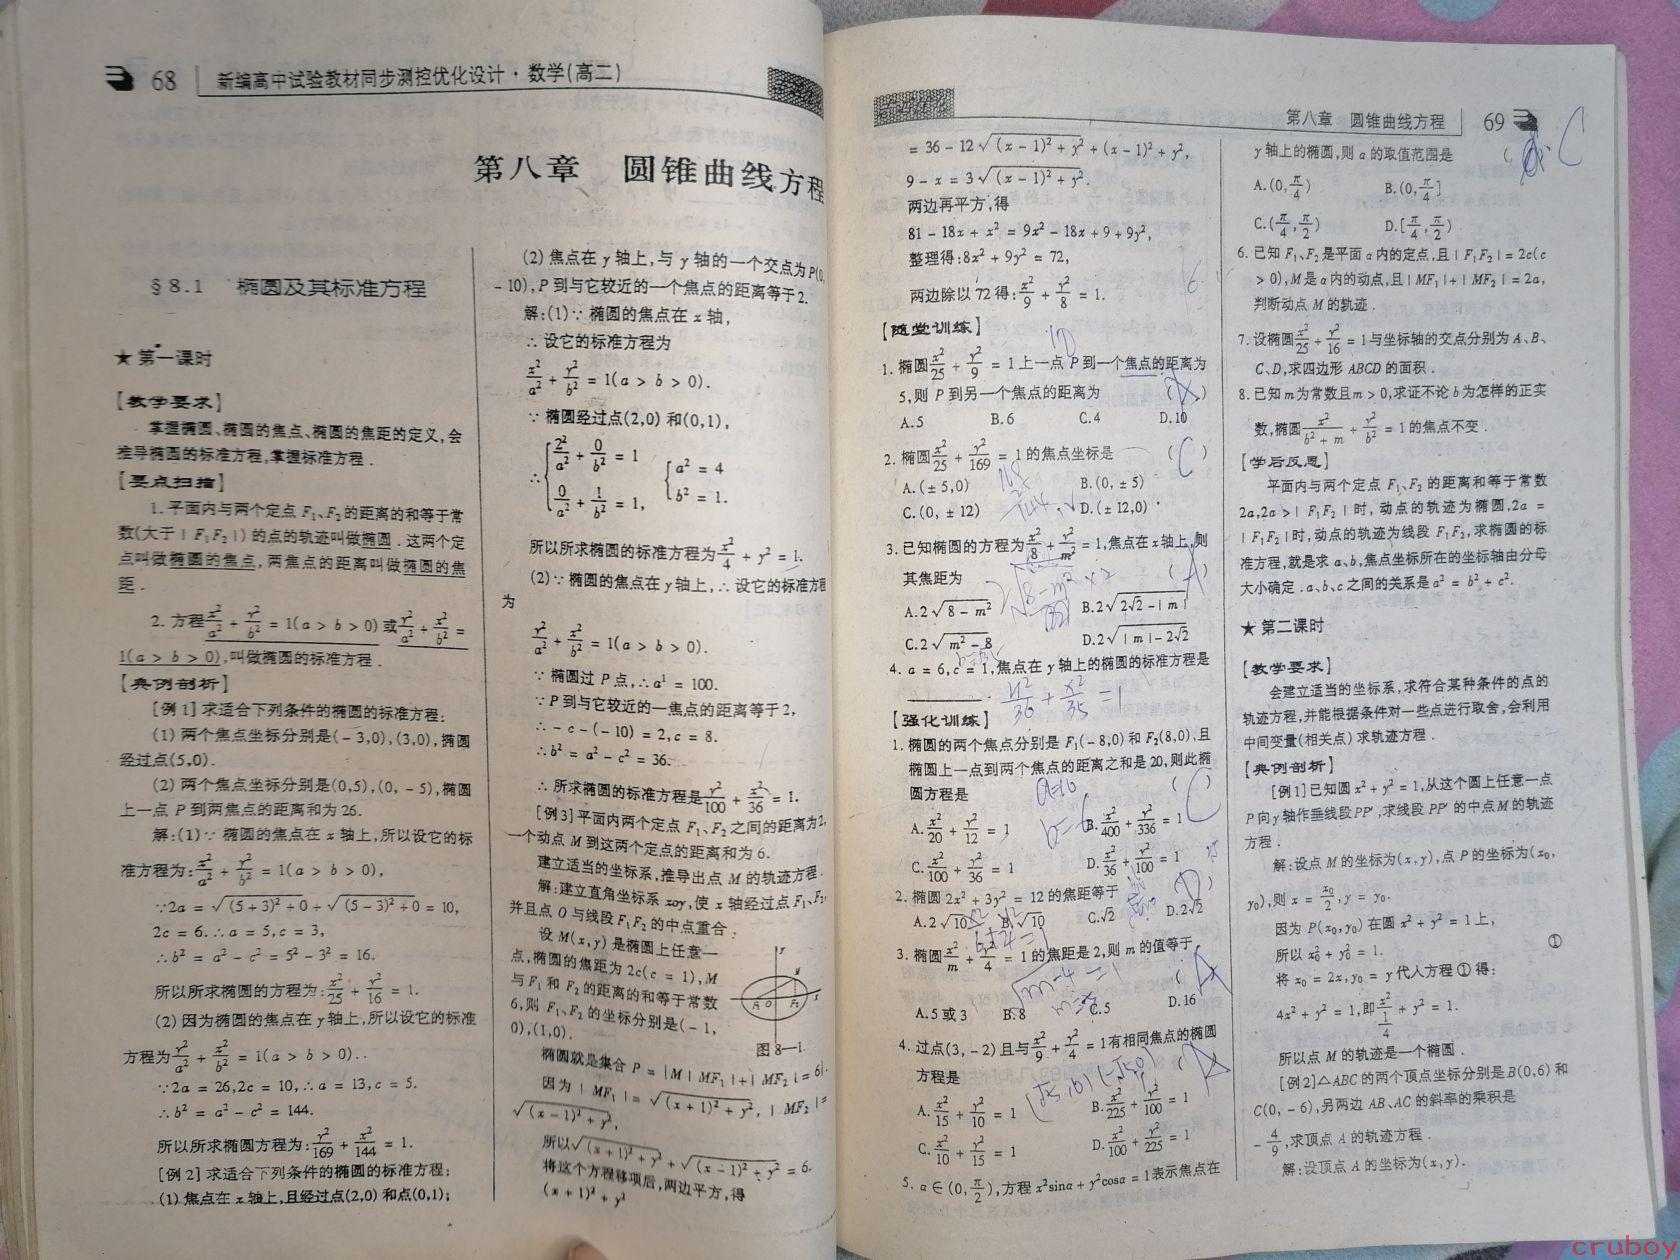 68 新编高中试验教材同步测控优化设计·数学(高二)
第八章 圆锥曲线方程
§8.1 椭圆及其标准方程
★ 第一课时
【教学要求】
掌握椭圆、椭圆的焦点、椭圆的焦距的定义,会
推导椭圆的标准方程,掌握标准方程.
【要点扫描】
1. 平面内与两个定点 F₁、F₂ 的距离的和等于常
数(大于|F₁F₂|)的点的轨迹叫做椭圆.这两个定
点叫做椭圆的焦点,两焦点的距离叫做椭圆的焦
距.
2. 方程x²/a² + y²/b² = 1(a > b > 0)或y²/a² + x²/b² =
1(a > b > 0),叫做椭圆的标准方程.
【典例剖析】
[例1] 求适合下列条件的椭圆的标准方程:
(1) 两个焦点坐标分别是(-3,0),(3,0),椭圆
经过点(5,0).
(2) 两个焦点坐标分别是(0,5),(0,-5),椭圆
上一点 P 到两焦点的距离和为26.
解:(1)∵ 椭圆的焦点在 x 轴上,所以设它的标
准方程为:x²/a² + y²/b² = 1(a > b > 0),
∵2a = √((5+3)²+0) + √((5-3)²+0) = 10,
2c = 6.∴a = 5,c = 3,
∴b² = a² - c² = 5² - 3² = 16.
所以所求椭圆的方程为:x²/25 + y²/16 = 1.
(2) 因为椭圆的焦点在 y 轴上,所以设它的标准
方程为y²/a² + x²/b² = 1(a > b > 0)..
∵2a = 26,2c = 10,∴a = 13,c = 5.
∴b² = a² - c² = 144.
所以所求椭圆方程为:y²/169 + x²/144 = 1.
[例2] 求适合下列条件的椭圆的标准方程;
(1) 焦点在 x 轴上,且经过点(2,0)和点(0,1);
(2) 焦点在 y 轴上,与 y 轴的一个交点为P(0,
-10),P 到与它较近的一个焦点的距离等于2.
解:(1)∵ 椭圆的焦点在 x 轴,
∴ 设它的标准方程为
x²/a² + y²/b² = 1(a > b > 0).
∵ 椭圆经过点(2,0)和(0,1),
∴{2²/a² + 0/b² = 1 {a² = 4
0/a² + 1/b² = 1, b² = 1.
所以所求椭圆的标准方程为x²/4 + y² = 1.
(2)∵ 椭圆的焦点在 y 轴上,∴ 设它的标准方程
为
y²/a² + x²/b² = 1(a > b > 0).
∵ 椭圆过 P 点,∴a¹ = 100.
∵P 到与它较近的一焦点的距离等于2,
∴-c-(-10) = 2,c = 8.
∴b² = a² - c² = 36.
∴ 所求椭圆的标准方程是y²/100 + x²/36 = 1.
[例3] 平面内两个定点 F₁、F₂ 之间的距离为2,
一个动点 M 到这两个定点的距离和为6.
建立适当的坐标系,推导出点 M 的轨迹方程.
解:建立直角坐标系 xoy,使 x 轴经过点 F₁、F₂
并且点 O 与线段F₁F₂ 的中点重合.
设 M(x,y) 是椭圆上任意一
点,椭圆的焦距为 2c(c = 1),M
与 F₁ 和 F₂ 的距离的和等于常数
6,则 F₁、F₂ 的坐标分别是(-1,
0),(1,0).
y
M
F₁ O F₂ x
图8—1
椭圆就是集合 P = |M||MF₁|+|MF₂|= 6|.
因为|MF₁|= √((x+1)²+y²),|MF₂|=
√((x-1)²+y²),
所以√((x+1)²+y²) + √((x-1)²+y²) = 6.
将这个方程移项后,两边平方,得
(x+1)² + y²
第八章 圆锥曲线方程 69
= 36 - 12√((x-1)²+y²) + (x-1)² + y²,
9 - x = 3√((x-1)²+y²).
两边再平方,得
81 - 18x + x² = 9x² - 18x + 9 + 9y²,
整理得:8x² + 9y² = 72,
两边除以72得:x²/9 + y²/8 = 1.
【随堂训练】
10
1. 椭圆x²/25 + y²/9 = 1上一点 P 到一个焦点的距离为
5,则 P 到另一个焦点的距离为 ( A )
A.5 B.6 C.4 D.10
2. 椭圆x²/25 + y²/169 = 1的焦点坐标是 ( C )
A.(±5,0) B.(0,±5)
C.(0,±12) D.(±12,0)
144
3. 已知椭圆的方程为x²/8 + y²/m² = 1,焦点在 x 轴上,则
其焦距为 ( A )
√(8-m²) ×2
A.2√(8-m²) B.2√(2√2-|m|)
C.2√(m²-8) D.2√(|m|-2√2)
4. a = 6,c = 1,焦点在 y 轴上的椭圆的标准方程是
y²/36 + x²/35 = 1
【强化训练】
1. 椭圆的两个焦点分别是 F₁(-8,0)和F₂(8,0),且
椭圆上一点到两个焦点的距离之和是20,则此椭
圆方程是 ( C )
b=6
A.x²/20 + y²/12 = 1 B.x²/400 + y²/336 = 1
C.x²/100 + y²/36 = 1 D.x²/36 + y²/100 = 1
2. 椭圆 2x² + 3y² = 12的焦距等于 ( D )
A.2√10 B.√10 C.√2 D.2√2
3. 椭圆x²/m + y²/4 = 1的焦距是2,则 m 的值等于
( A )
A.5或3 B.8 C.5 D.16
4. 过点(3,-2)且与x²/9 + y²/4 = 1有相同焦点的椭圆
方程是 ( A )
(√5,0) (-√5,0)
A.x²/15 + y²/10 = 1 B.x²/225 + y²/100 = 1
C.x²/10 + y²/15 = 1 D.x²/100 + y²/225 = 1
5. α∈(0,π/2),方程 x²sinα + y²cosα = 1表示焦点在
y 轴上的椭圆,则 α 的取值范围是 ( C
A.(0,π/4) B.(0,π/4]
C.(π/4,π/2) D.[π/4,π/2)
6. 已知 F₁、F₂ 是平面 α 内的定点,且|F₁F₂| = 2c(c
> 0),M 是 α 内的动点,且|MF₁|+|MF₂| = 2a,
判断动点 M 的轨迹.
7. 设椭圆x²/25 + y²/16 = 1与坐标轴的交点分别为 A、B、
C、D,求四边形 ABCD 的面积.
8. 已知 m 为常数且m > 0,求证不论 b 为怎样的正实
数,椭圆x²/(b²+m) + y²/b² = 1的焦点不变.
【学后反思】
平面内与两个定点 F₁、F₂ 的距离和等于常数
2a,2a>|F₁F₂|时,动点的轨迹为椭圆,2a =
|F₁F₂|时,动点的轨迹为线段 F₁F₂,求椭圆的标
准方程,就是求 a、b,焦点坐标所在的坐标轴由分母
大小确定.a、b、c 之间的关系是 a² = b² + c².
★ 第二课时
【教学要求】
会建立适当的坐标系,求符合某种条件的点的
轨迹方程,并能根据条件对一些点进行取舍,会利用
中间变量(相关点)求轨迹方程.
【典例剖析】
[例1] 已知圆 x² + y² = 1,从这个圆上任意一点
P 向 y 轴作垂线段PP′,求线段 PP′ 的中点 M 的轨迹
方程.
解:设点 M 的坐标为(x,y),点 P 的坐标为(x₀,
y₀),则 x = x₀/2,y = y₀.
因为 P(x₀,y₀)在圆 x² + y² = 1上,
所以 x₀² + y₀² = 1. ①
将 x₀ = 2x,y₀ = y 代人方程①得:
4x² + y² = 1,即x²/(1/4) + y² = 1.
所以点 M 的轨迹是一个椭圆.
[例2]△ABC 的两个顶点坐标分别是B(0,6)和
C(0,-6),另两边 AB、AC 的斜率的乘积是
-4/9,求顶点 A 的轨迹方程.
解:设顶点 A 的坐标为(x,y).
cruboy